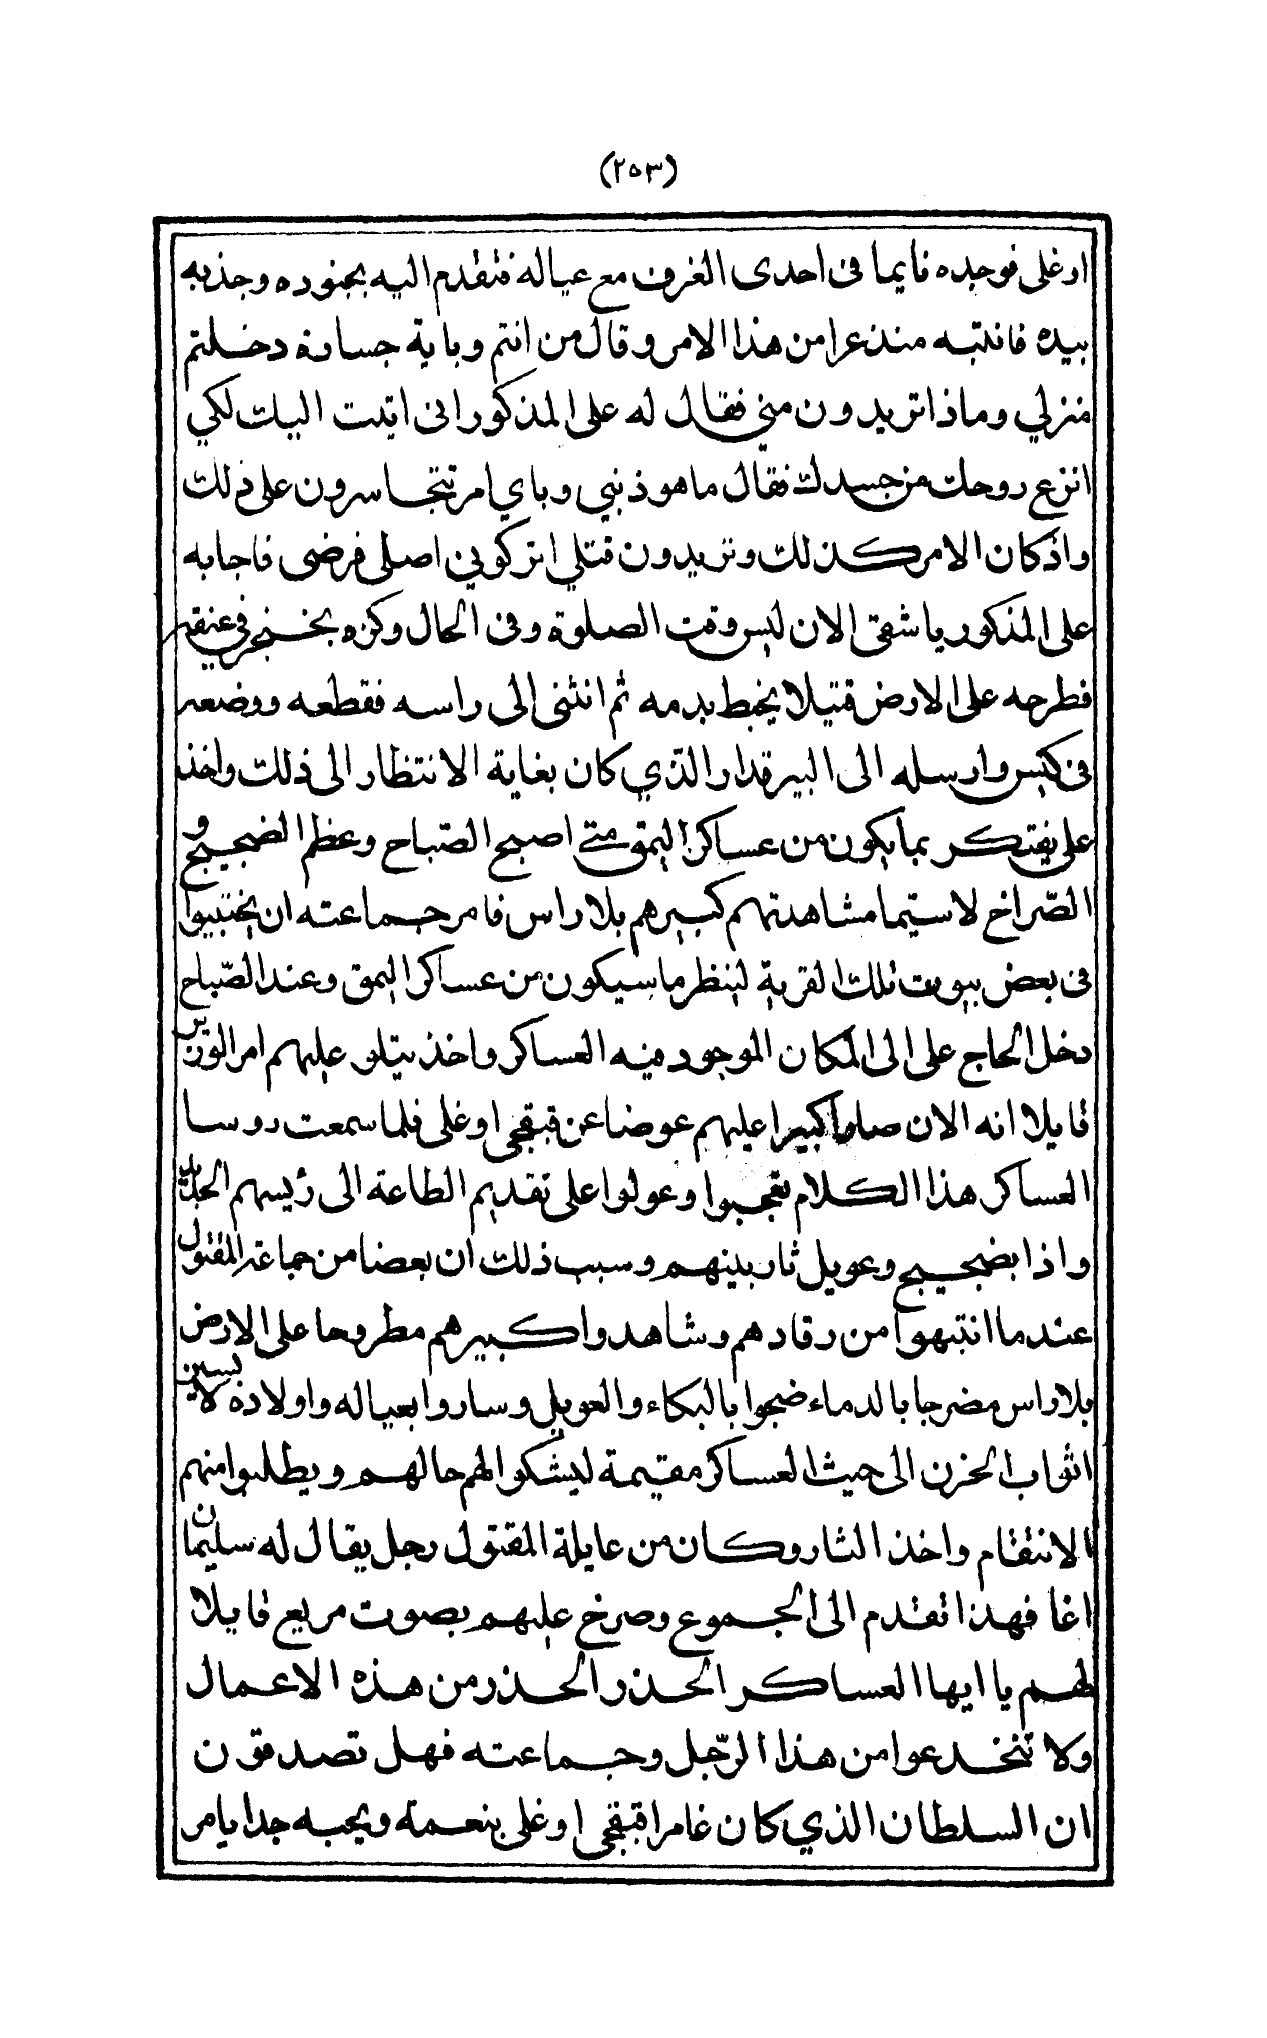 (٢٥٣)
اوغلى فوجده نايما فى احدى الغرف مع عياله فتقدم اليه بجنوده وجذبه
بيده فانتبه منذعرا من هذا الامر وقال من انتم وباية جسارة دخلتم
منزلي وماذا تريدون مني فقال له على المذكور انى اتيت اليك لكي
انزع روحك من جسدك فقال ما هو ذنبي وباي امر تتجاسرون على ذلك
واذ كان الامر كذلك وتريدون قتلي اتركوني اصلى فرضى فاجابه
على المذكور يا شقى الان ليس وقت الصلوة وفى الحال وكزه بخنجر في عنقه
فطرحه على الارض قتيلا يخبط بدمه ثم انثنى الى راسه فقطعه ووضعه
فى كيس وارسله الى البيرقدار الذي كان بغاية الانتظار الى ذلك واخذ
على يفتكر بما يكون من عساكر اليمق متى اصبح الصّباح وعظم الضجيج و
الصّراخ لاسيّما مشاهدتهم كبيرهم بلا راس فامر جماعته ان يختبيوا
فى بعض بيوت تلك القرية لينظر ما سيكون من عساكر اليمق وعند الصّباح
دخل الحاج على الى المكان الموجود فيه العساكر واخذ يتلو عليهم امر الوزير
قايلا انه الان صار كبيرا عليهم عوضا عن قبقجى اوغلى فلما سمعت روسا
العساكر هذا الكلام تعجبوا وعولوا على تقديم الطاعة الى رئيسهم الجديد
واذا بضجيج وعويل ثار بينهم وسبب ذلك ان بعضا من جماعة المقتول
عندما انتبهوا من رقادهم وشاهدوا كبيرهم مطروحا على الارض
بلا راس مضرجا بالدماء ضجوا بالبكاء والعويل وساروا بعياله واولاده لابسين
اثواب الحزن الى حيث العساكر مقيمة ليشكوا لهم حالهم ويطلبوا منهم
الانتقام واخذ الثار وكان من عايلة المقتول رجل يقال له سليمان
اغا فهذا تقدم الى الجموع وصرخ عليهم بصوت مريع قايلا
لهم يا ايها العساكر الحذر الحذر من هذه الاعمال
ولا تنخدعوا من هذا الرّجل وجماعته فهل تصدقون
ان السلطان الذي كان غامرا قبقجى اوغلى بنعمة ويحبه جدا يامر